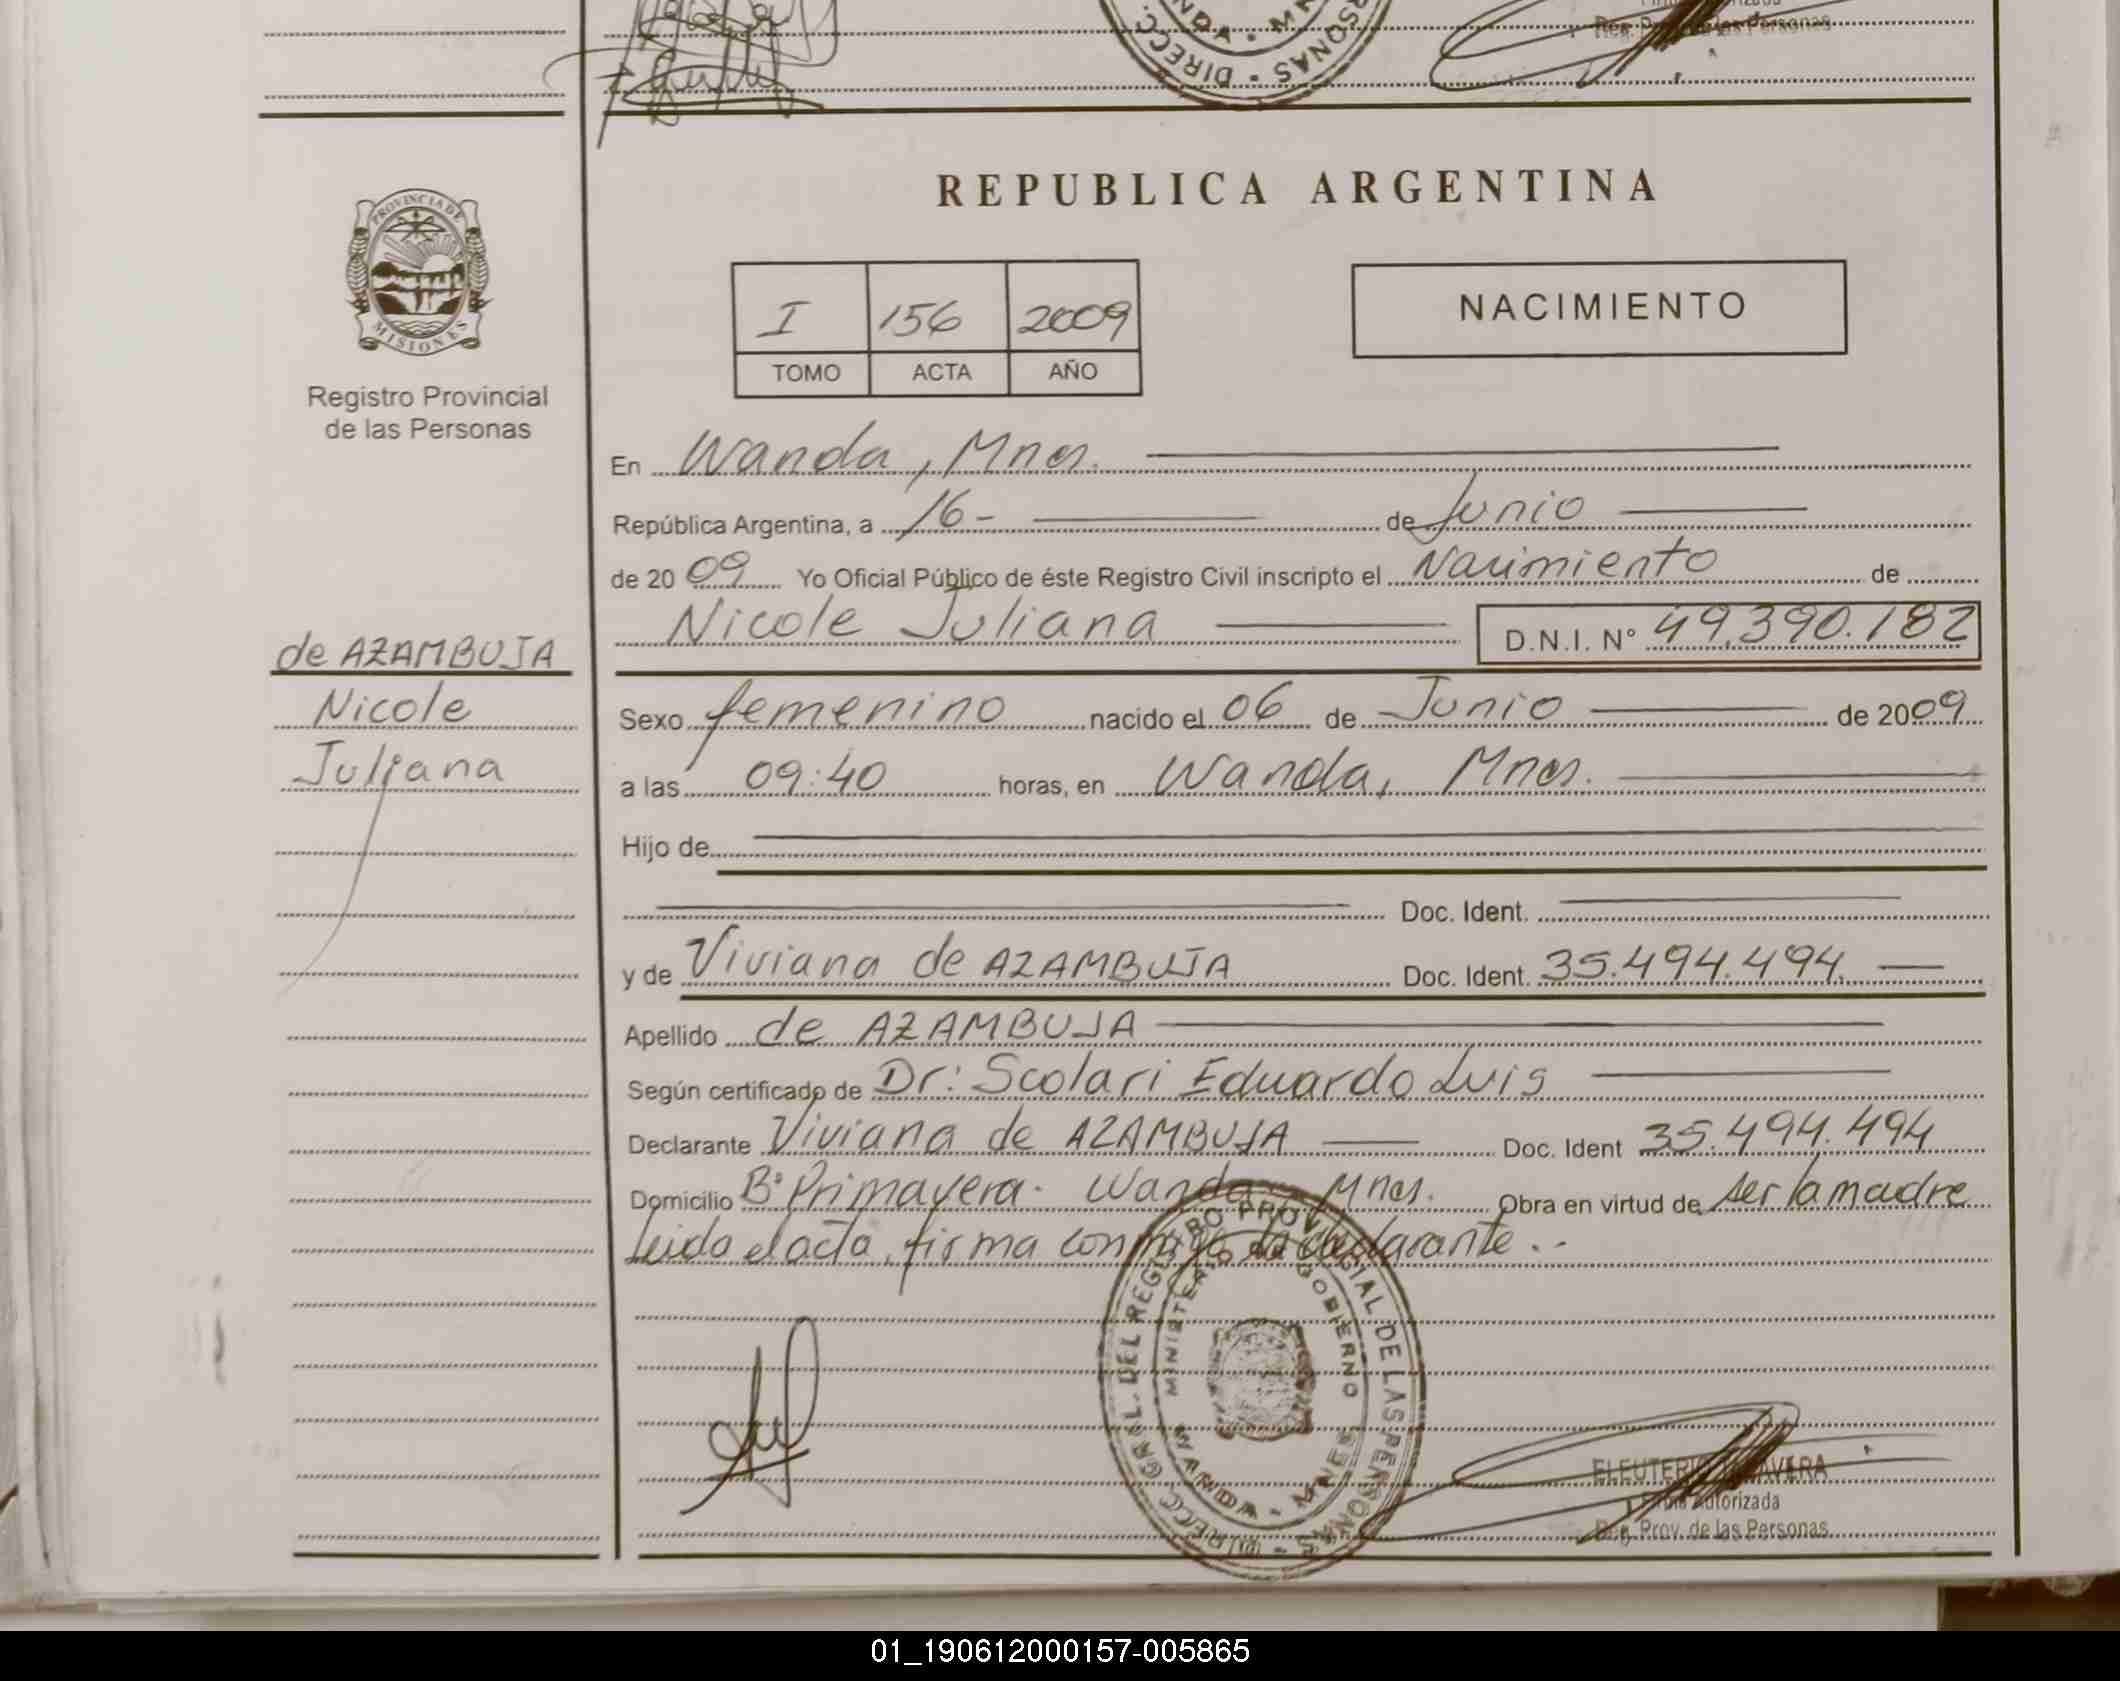 DIRECC.
SONAS
Reg. Prov. de las Personas
PROVINCIA DE
MISIONES
Registro Provincial
de las Personas
REPUBLICA ARGENTINA
I 156 2009
TOMO ACTA AÑO
NACIMIENTO
En Wanda, Mnes.
República Argentina, a 16- de Junio
de 2009 Yo Oficial Público de éste Registro Civil inscripto el Nacimiento de
Nicole Juliana D.N.I. N° 49.390.182
de AZAMBUJA
Nicole
Juliana
Sexo femenino nacido el 06 de Junio de 2009
a las 09:40 horas, en Wanda, Mnes.
Hijo de
Doc. Ident.
y de Viviana de AZAMBUJA Doc. Ident. 35.494.494.
Apellido de AZAMBUJA
Según certificado de Dr: Scolari Eduardo Luis
Declarante Viviana de AZAMBUJA Doc. Ident 35.494.494
Domicilio B° Primavera. Wanda Mnes. Obra en virtud de ser la madre
Leida el acta, firma conmigo la declarante.-
DIRECC. GRAL. DEL REGISTRO PROVINCIAL DE LAS PERSONAS
MINISTERIO DE GOBIERNO
WANDA - MNES
Firma Autorizada
Reg. Prov. de las Personas
01_190612000157-005865